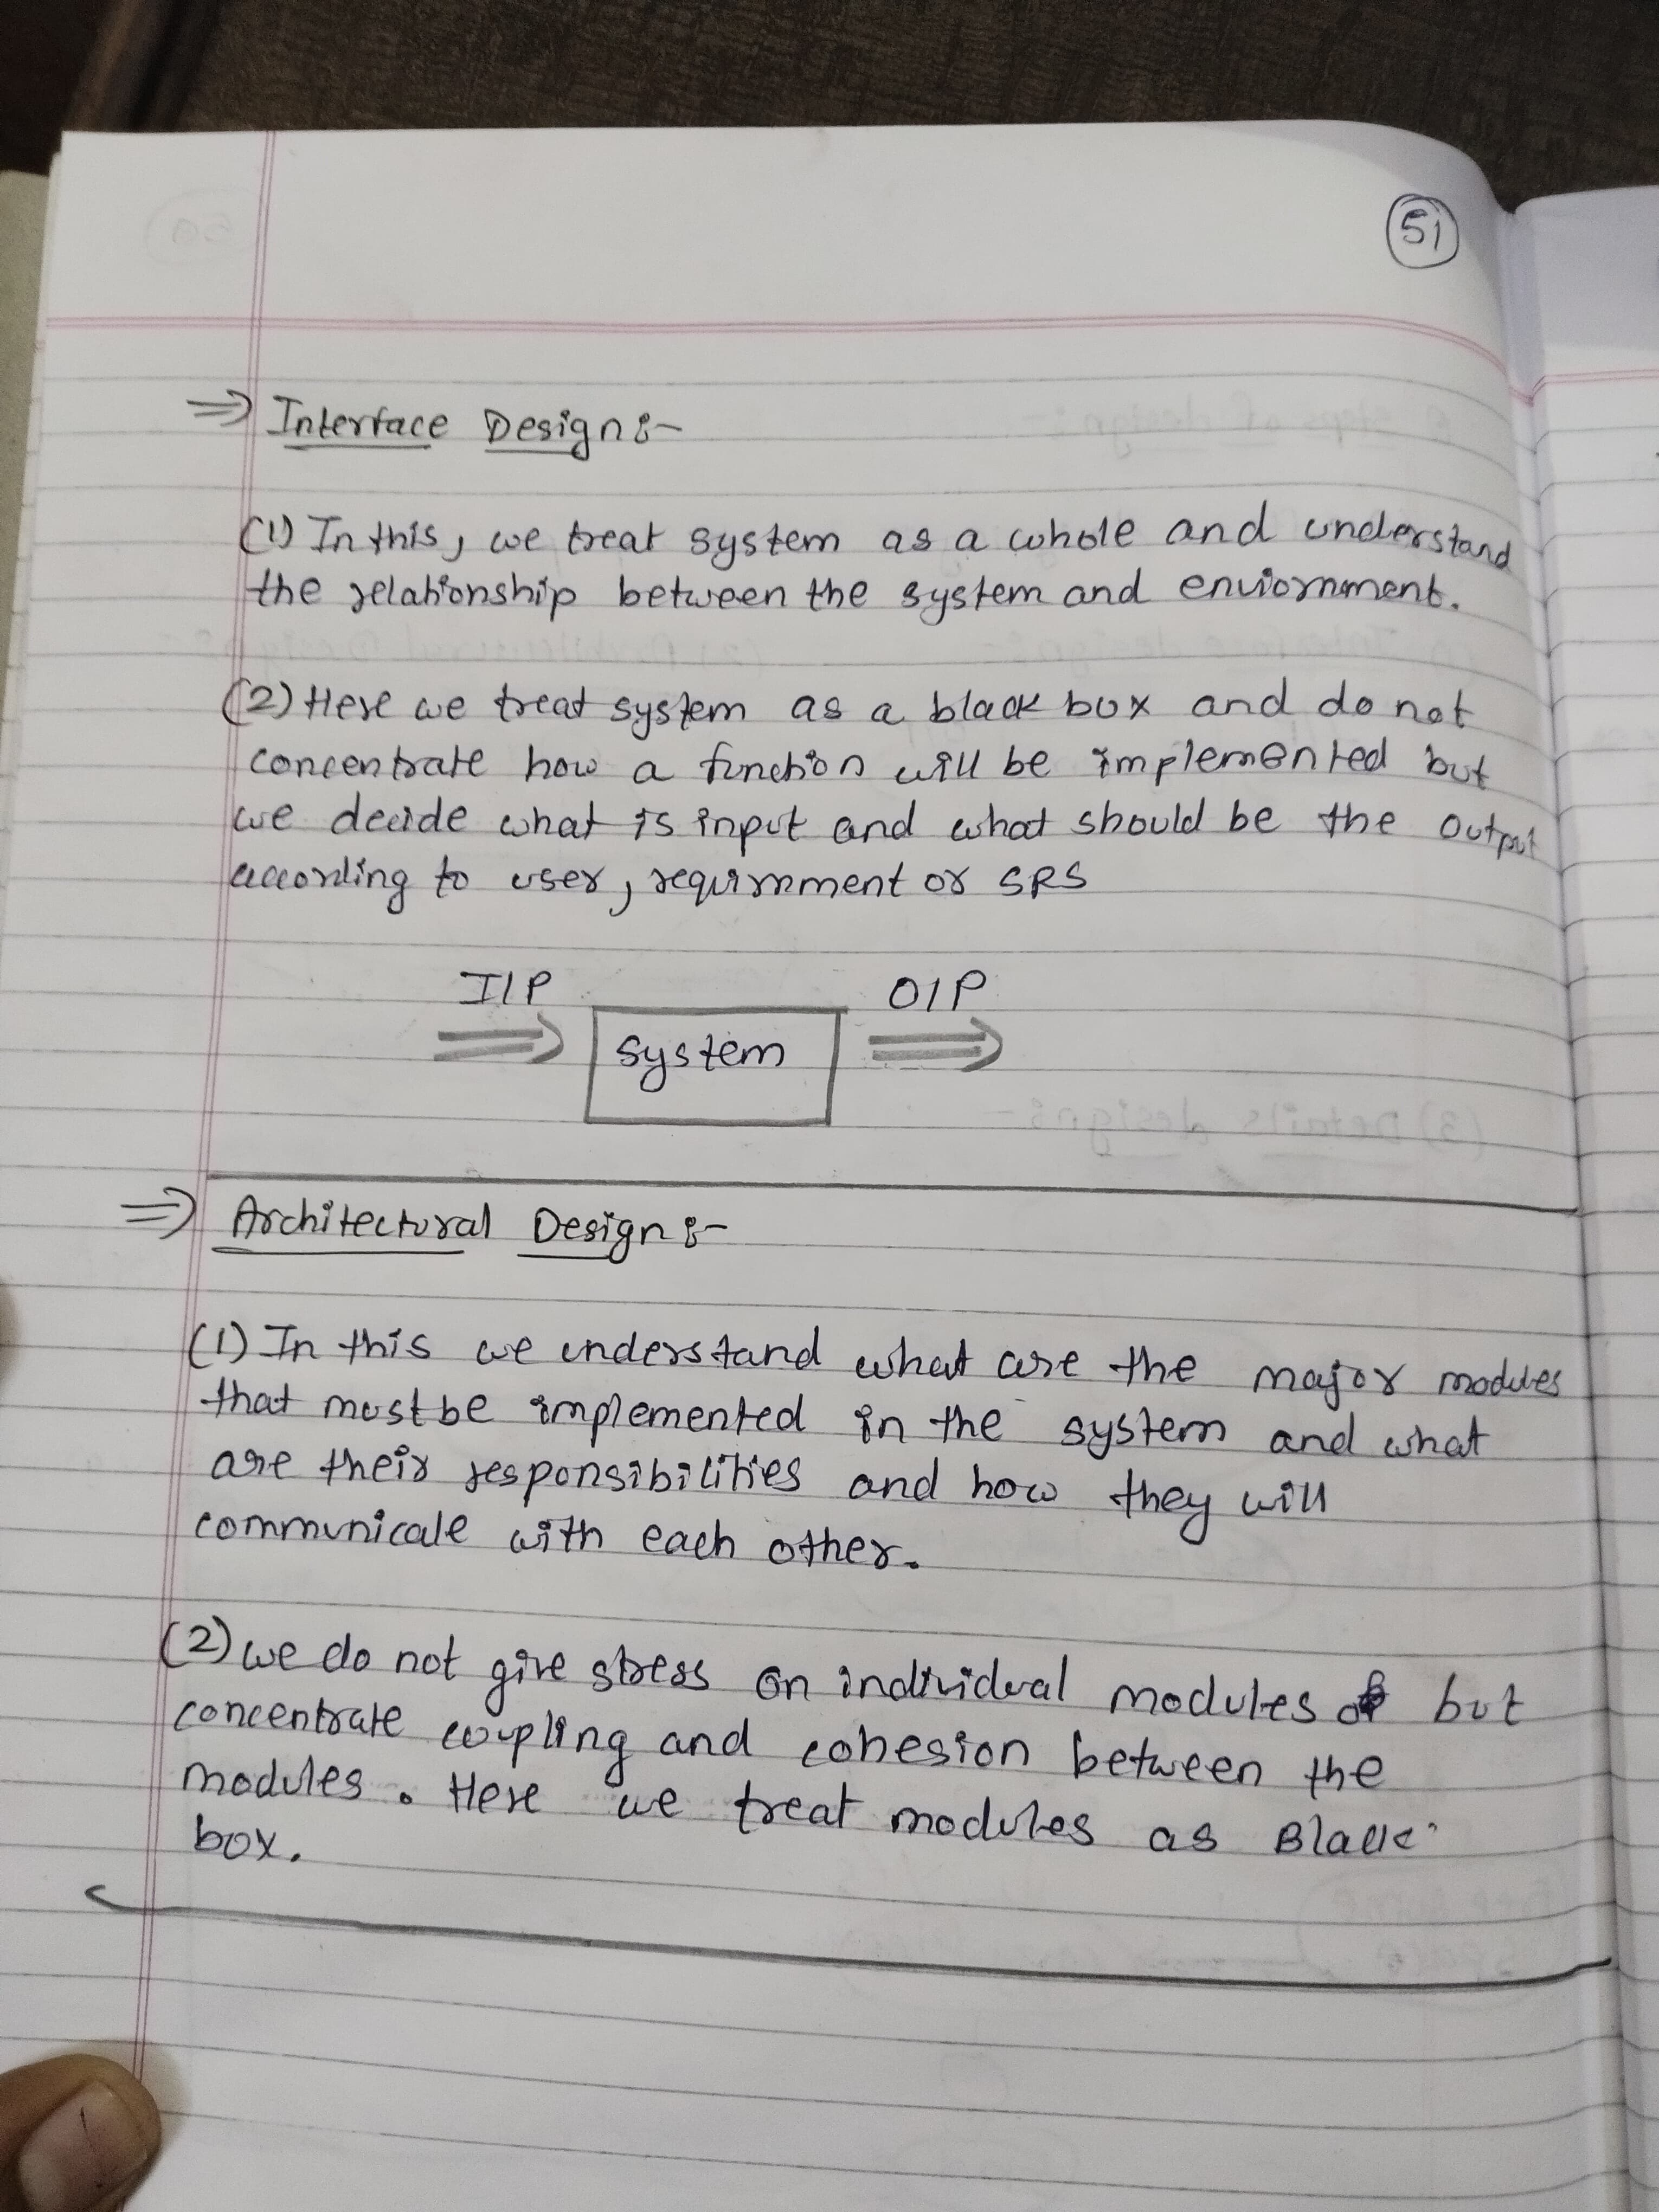 51
⇒ Interface Design:-
(1) In this, we treat system as a whole and understand
the relationship between the system and enviornment.
(2) Here we treat system as a black box and do not
concentrate how a function will be implemented but
we decide what is input and what should be the output
according to user, requirnment or SRS
I/P O/P
system
⇒ Architectural Design:-
(1) In this we understand what are the major modules
that must be implemented in the system and what
are their responsibilities and how they will
communicate with each other.
(2) we do not give stress on individual modules but
concentrate coupling and cohesion between the
modules. Here we treat modules as Black
box.